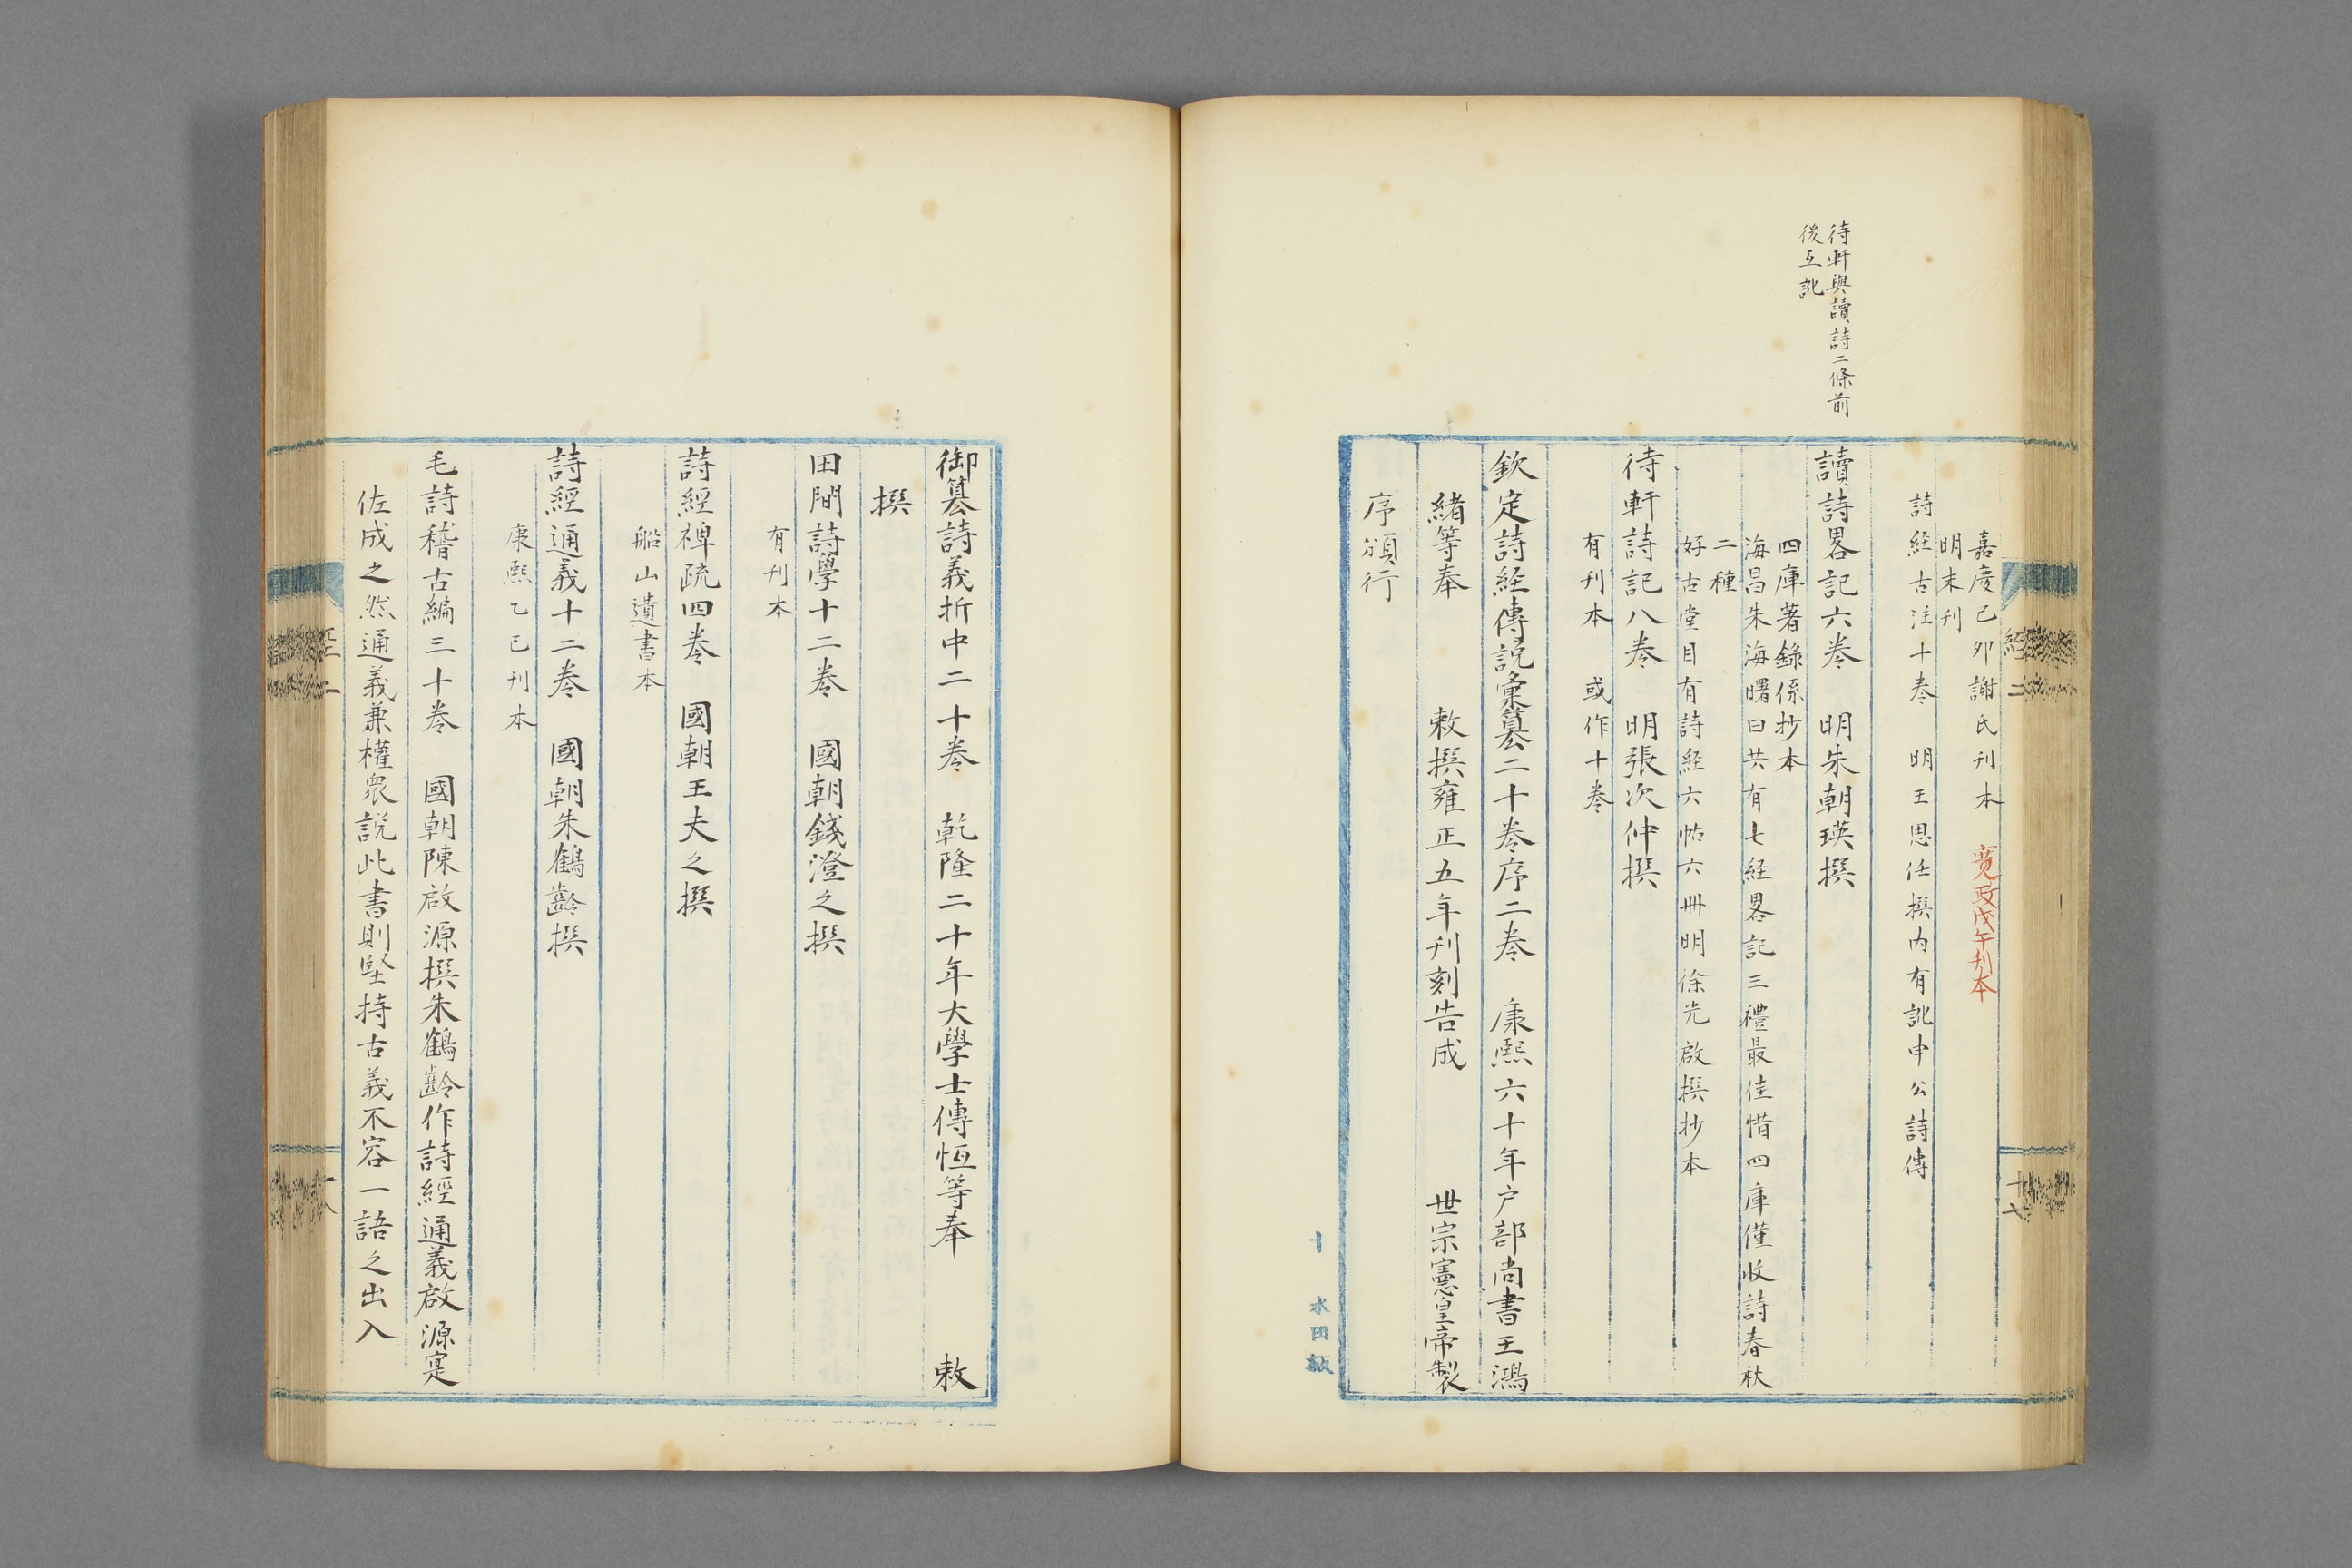 待軒與讀詩二條前
後互訛
嘉慶己卯謝氏刊本 寛政戊午刊本
明末刊
詩経古注十卷 明王思任撰内有訛申公詩傳
讀詩畧記六卷 明朱朝瑛撰
四庫著錄係抄本
海昌朱海曙曰共有七経畧記三禮最佳惜四庫僅收詩春秋
二種
好古堂目有詩経六帖六冊明徐光啟撰抄本
待軒詩記八卷 明張次仲撰
有刊本 或作十卷
欽定詩経傳説彙纂二十卷序二卷 康熙六十年户部尚書王鴻
緒等奉 敕撰雍正五年刊刻告成 世宗憲皇帝製
序頒行
經二
十七
御纂詩義折中二十卷 乾隆二十年大學士傅恒等奉 敕
撰
田間詩學十二卷 國朝錢澄之撰
有刊本
詩經稗疏四卷 國朝王夫之撰
船山遺書本
詩經通義十二卷 國朝朱鶴齡撰
康熙乙巳刊本
毛詩稽古編三十卷 國朝陳啟源撰朱鶴齡作詩經通義啟源寔
佐成之然通義兼權衆説此書則堅持古義不容一語之出入